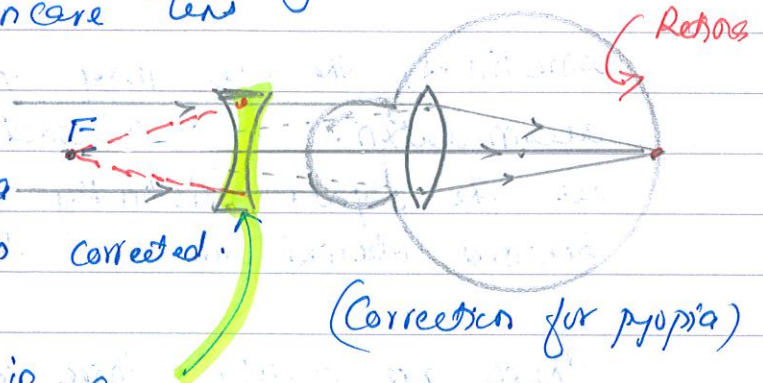 ncave lens
Retina
F
corrected.
(Correction for myopia)